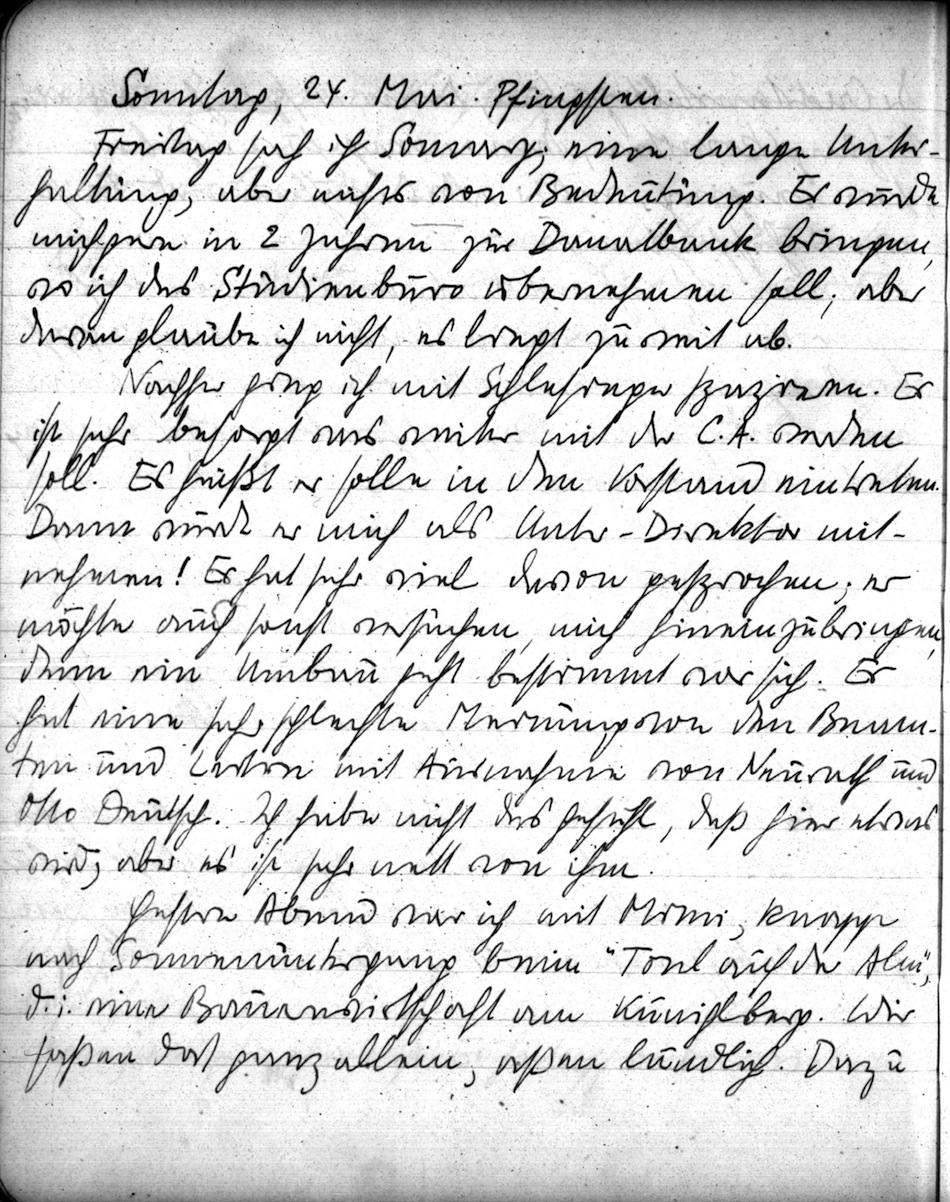 Sonntag, 24. Mai. Pfingsten.
Freitag sah ich Somary; eine lange Unter-
haltung, aber nichts von Bedeutung. Er würde
mich gern in 2 Jahren zur Donaubank bringen,
wo ich das Studienbüro übernehmen soll; aber
daran glaube ich nicht, es liegt zu weit ab.
Nachher ging ich mit Schlesinger spazieren. Er
ist sehr besorgt was weiter mit der C.A. werden
soll. Es heißt er solle in den Vorstand eintreten.
Dann würde er mich als Unter-Direktor mit-
nehmen! Er hat sehr viel davon gesprochen; er
möchte auch sonst versuchen, mich hineinzubringen,
denn ein Umbau geht bestimmt vor sich. Er
hat eine sehr schlechte Meinung von den Beam-
ten und Leitern mit Ausnahme von Neurath und
Otto Deutsch. Ich habe nicht das Gefühl, daß hier etwas
wird, aber es ist sehr nett von ihm.
Gestern Abend war ich mit Mimi, knapp
nach Sonnenuntergang beim "Tonl auf der Alm",
d.i. eine Bauernwirtschaft am Küniglberg. Wir
saßen dort ganz allein, aßen ländlich. Dazu